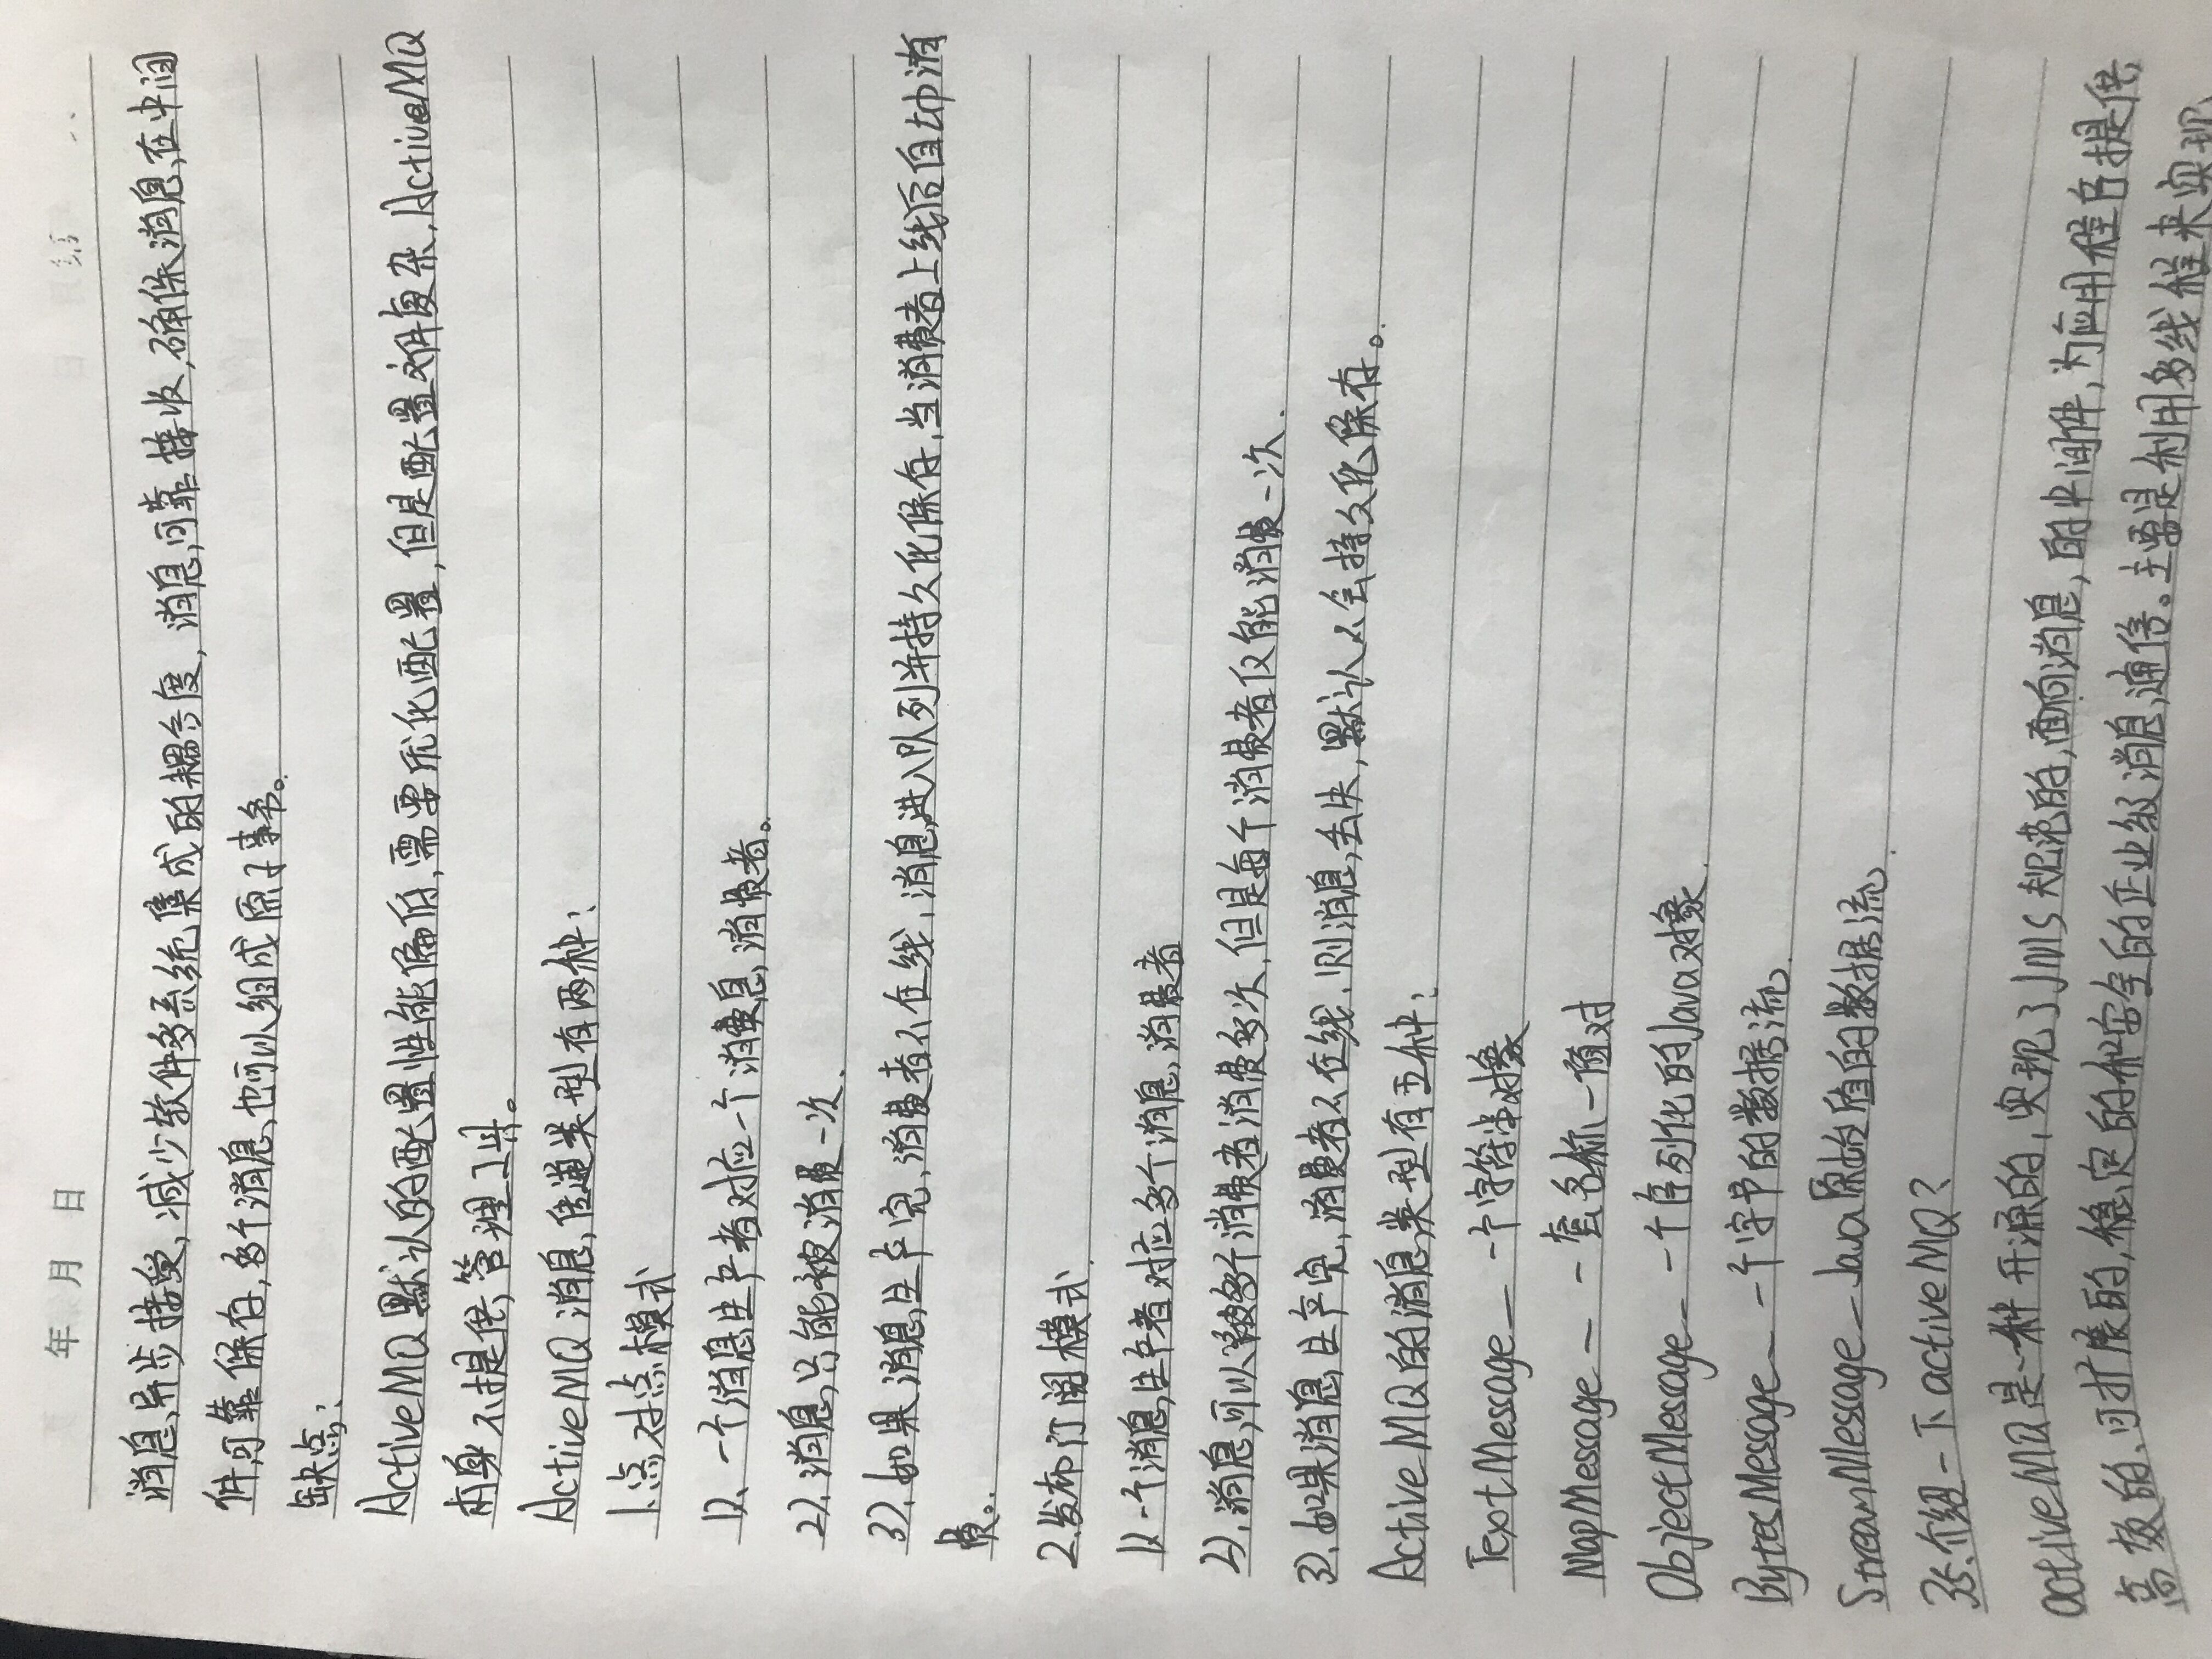 年 月 日
消息异步接受,减少软件多系统集成的耦合度,消息可靠接收,确保消息在中间
件可靠保存,多个消息也可以组成原子事务。
缺点:
ActiveMQ默认的配置性能偏低,需要优化配置,但是配置文件复杂,ActiveMQ
本身不提供管理工具。
ActiveMQ 消息传递类型有两种:
1.点对点模式
1)、一个消息生产者对应一个消费息消费者。
2)、消息只能被消费一次.
3)、如果消息生产完,消费者不在线,消息进入队列并持久化保存,当消费者上线后自动消
费。
2.发布订阅模式.
1)、一个消息生产者对应多个消息消费者
2)、消息可以被多个消费者消费多次,但是每个消费者仅能消费一次.
3)、如果消息生产完,消费者不在线,则消息丢失,默认不会持久化保存。
ActiveMQ的消息类型有五种:
TextMessage— 一个字符串对象
MapMessage — 一套名称—值对
ObjectMessage— 一个序列化的Java对象.
BytesMessage— 一个字节的数据流.
StreamMessage—Java原始值的数据流.
35.介绍一下activeMQ?
activeMQ是一种开源的,实现了JMS规范的,面向消息的中间件,为应用程序提供
高效的、可扩展的,稳定的和安全的企业级消息通信。主要是利用多线程来实现